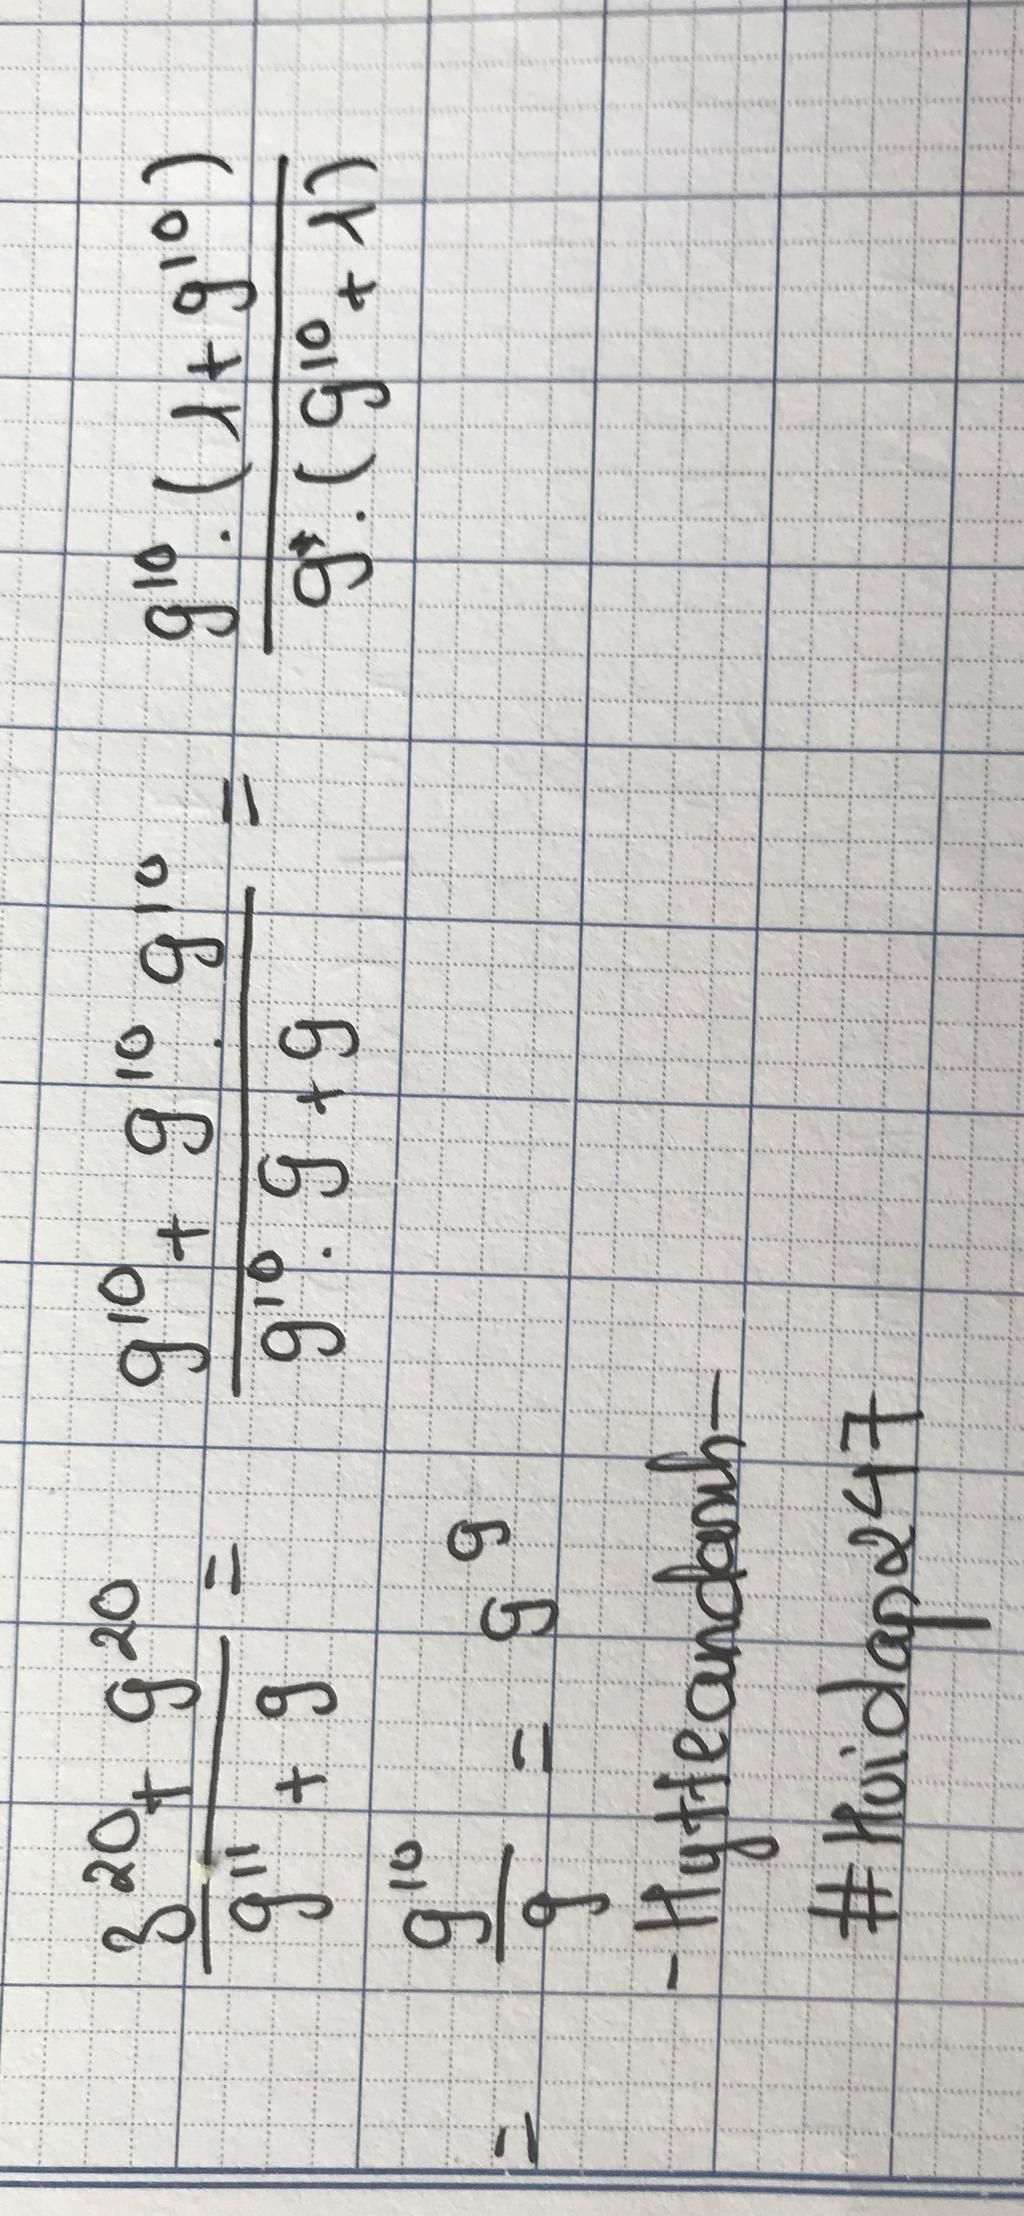 3²⁰ + 9²⁰ / 9¹¹ + 9 = 9¹⁰ + 9¹⁰ . 9¹⁰ / 9¹⁰ . 9 + 9 = 9¹⁰ . (1 + 9¹⁰) / 9 . (9¹⁰ + 1)
= 9¹⁰ / 9 = 9⁹
#Hoidap247